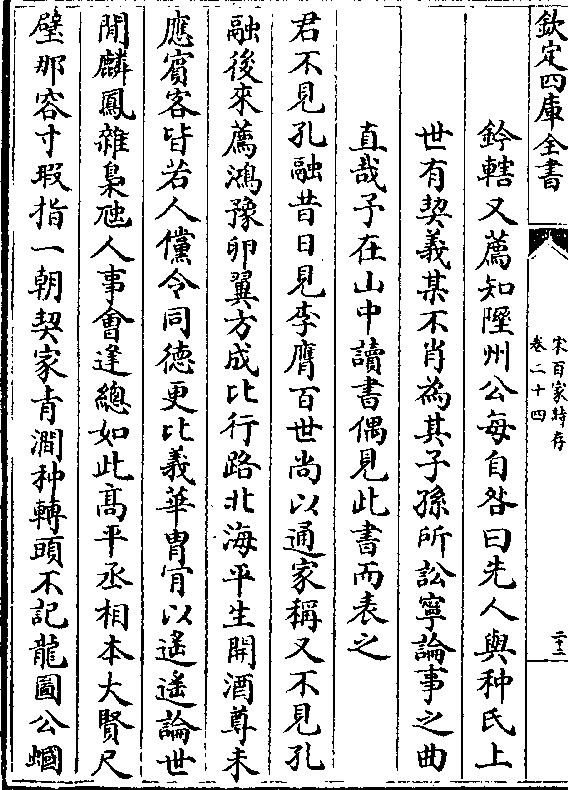 欽定四庫全書
宋百家詩存
卷二十四
三三
鈐轄又薦知隰州公每自咎曰先人與种氏上
世有契義某不肖為其子孫所訟寧論事之曲
直哉予在山中讀書偶見此書而表之
君不見孔融昔日見李膺百世尚以通家稱又不見孔
融後來薦鴻豫卵翼方成比行路北海平生開酒尊未
應賓客皆若人儻令同德更比義華冑肎以遥遥論世
間麟鳳雜梟虺人事會逢總如此髙平丞相本大賢尺
璧那容寸瑕指一朝契家青澗种轉頭不記龍圖公蝈